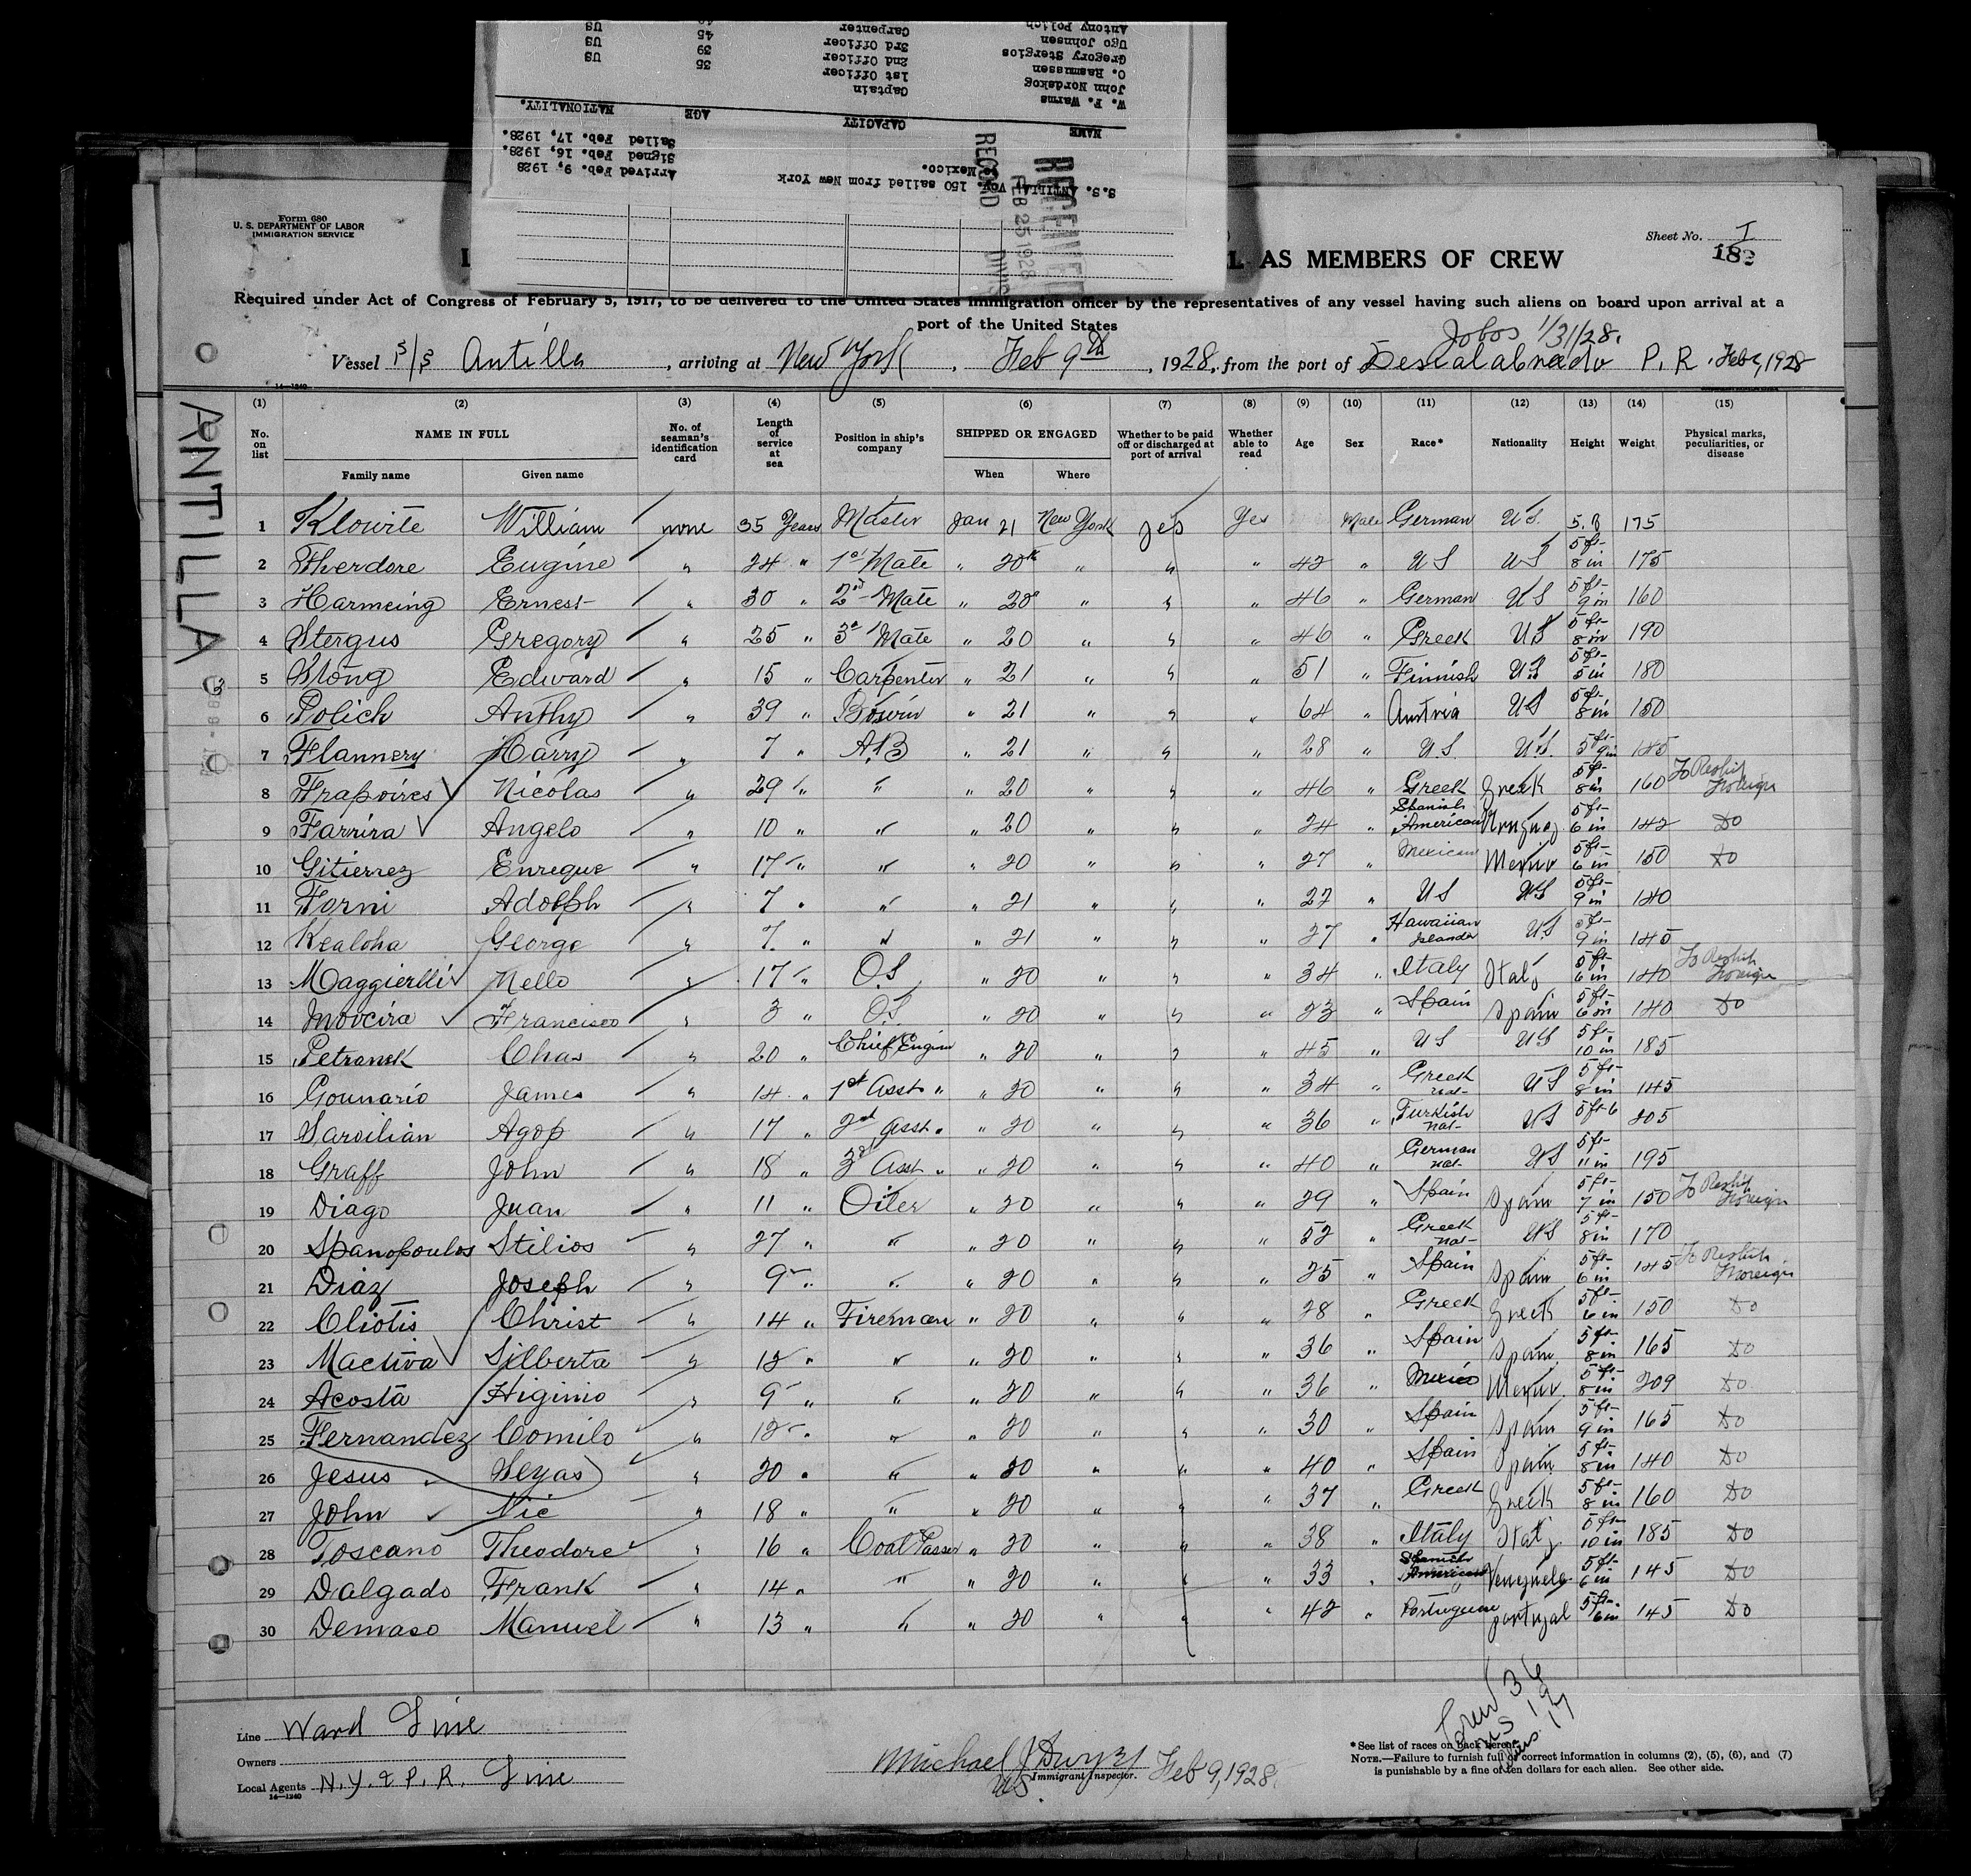 S.S. ANTILLA Voy. 150 sailed from New York
Mexico.
Arrived Feb. 9, 1928
Signed Feb. 16, 1928.
Sailed Feb. 17, 1928.
NAME CAPACITY AGE NATIONALITY.
W. F. Warms Captain
John Nordskog 1st Officer
O. Rasmussen 2nd Officer 35 US
Gregory Stergios 3rd Officer 39 US
Ugo Johnsen Carpenter 45 US
Antony Polich
RECEIVED
FEB 25 1928
RECORD DIVIS
Form 680
U. S. DEPARTMENT OF LABOR
IMMIGRATION SERVICE
Sheet No. I
182
AS MEMBERS OF CREW
Required under Act of Congress of February 5, 1917, to be delivered to the United States immigration officer by the representatives of any vessel having such aliens on board upon arrival at a
port of the United States
Jobos 1/31/28.
Vessel S/S Antilla, arriving at New York, Feb 9th, 1928, from the port of Descalabrado P.R. Feb 2, 1928
14—1240
ANTILLA
(1) (2) (3) (4) (5) (6) (7) (8) (9) (10) (11) (12) (13) (14) (15)
No. on list NAME IN FULL No. of seaman's identification card Length of service at sea Position in ship's company SHIPPED OR ENGAGED Whether to be paid off or discharged at port of arrival Whether able to read Age Sex Race* Nationality Height Weight Physical marks, peculiarities, or disease
Family name Given name When Where
1 Klowite William none 35 Years Master Jan 21 New York yes Yes Male German US. 5.8 175
2 Therdore Eugine " 24 " 1st Mate " 20th " " " 42 " US US 5 ft- 8 in 175
3 Harmeing Ernest " 30 " 2nd Mate " 20 " " " 46 " German US 5 ft- 9 in 160
4 Stergus Gregory " 25 " 3d Mate " 20 " " " 46 " Greek US 5 ft- 8 in 190
5 Stong Edward " 15 " Carpenter " 21 " " " 51 " Finnish US 5 ft- 5 in 180
6 Polich Anthy " 39 " Boswin " 21 " " " 64 " Austria US 5 ft- 8 in 150
7 Flannery Harry " 7 " AB " 21 " " " 28 " U.S. U.S. 5 ft- 9 in 185
8 Frapoires Nicolas " 29 " " " 20 " " " 46 " Greek Greek 5 ft- 8 in 160 To Reship Foreign
9 Farrira Angelo " 10 " " " 20 " " " 24 " Spanish American Uruguay 5 ft- 6 in 142 Do
10 Gitierrez Enreque " 17 " " " 20 " " " 27 " Mexican Mexico 5 ft- 6 in 150 Do
11 Forni Adolph " 7 " " " 21 " " " 27 " US US 5 ft- 9 in 140
12 Kealoha George " 7 " " " 21 " " " 27 " Hawaiian Islander US 5 ft- 9 in 145
13 Maggierlli Nello " 17 " OS " 20 " " " 34 " Italy Italy 5 ft- 6 in 140 To Reship Foreign
14 Movcira Francisco " 3 " OS " 20 " " " 23 " Spain Spain 5 ft- 6 in 140 Do
15 Petranek Chas " 20 " Chief Engin " 20 " " " 45 " US US 5 ft- 10 in 185
16 Gounario James " 14 " 1st Asst " " 20 " " " 34 " Greek nat- US 5 ft- 8 in 145
17 Saroilian Agop " 17 " 2nd Asst " " 20 " " " 36 " Turkish nat- US 5 ft 6 205
18 Graff John " 18 " 3rd Asst " " 20 " " " 40 " German nat- US 5 ft- 11 in 195
19 Diago Juan " 11 " Oiler " 20 " " " 29 " Spain Spain 5 ft- 7 in 150 To Reship Foreign
20 Spanopoulos Stilios " 27 " " " 20 " " " 52 " Greek nat- US 5 ft- 8 in 170
21 Diaz Joseph " 9 " " " 20 " " " 25 " Spain Spain 5 ft- 6 in 145 To Reship Foreign
22 Cliotis Christ " 14 " Fireman " 20 " " " 28 " Greek Greek 5 ft- 6 in 150 Do
23 Mactiva Silberta " 12 " " " 20 " " " 36 " Spain Spain 5 ft- 8 in 165 Do
24 Acosta Higinio " 9 " " " 20 " " " 36 " Mexico Mexico 5 ft- 8 in 209 Do
25 Fernandez Comilo " 12 " " " 20 " " " 30 " Spain Spain 5 ft- 9 in 165 Do
26 Jesus Seyas " 20 " " " 20 " " " 40 " Spain Spain 5 ft- 8 in 140 Do
27 John Nic " 18 " " " 20 " " " 37 " Greek Greek 5 ft- 8 in 160 Do
28 Toscano Theodore " 16 " Coal Passer " 20 " " " 38 " Italy Italy 5 ft- 10 in 185 Do
29 Dalgado Frank " 14 " " " 20 " " " 33 " Spanish American Venezuela 5 ft- 6 in 145 Do
30 Demaso Manuel " 13 " " " 20 " " " 42 " Portuguese Portugal 5 ft- 6 in 145 Do
Crew 36
US 19
Aliens 17
Line Ward Line
Owners
Local Agents N.Y. & P.R. Line
14—1240
Michael J Dwyer Feb 9, 1928
US. Immigrant Inspector.
*See list of races on back hereof.
NOTE.—Failure to furnish full or correct information in columns (2), (5), (6), and (7)
is punishable by a fine of ten dollars for each alien. See other side.